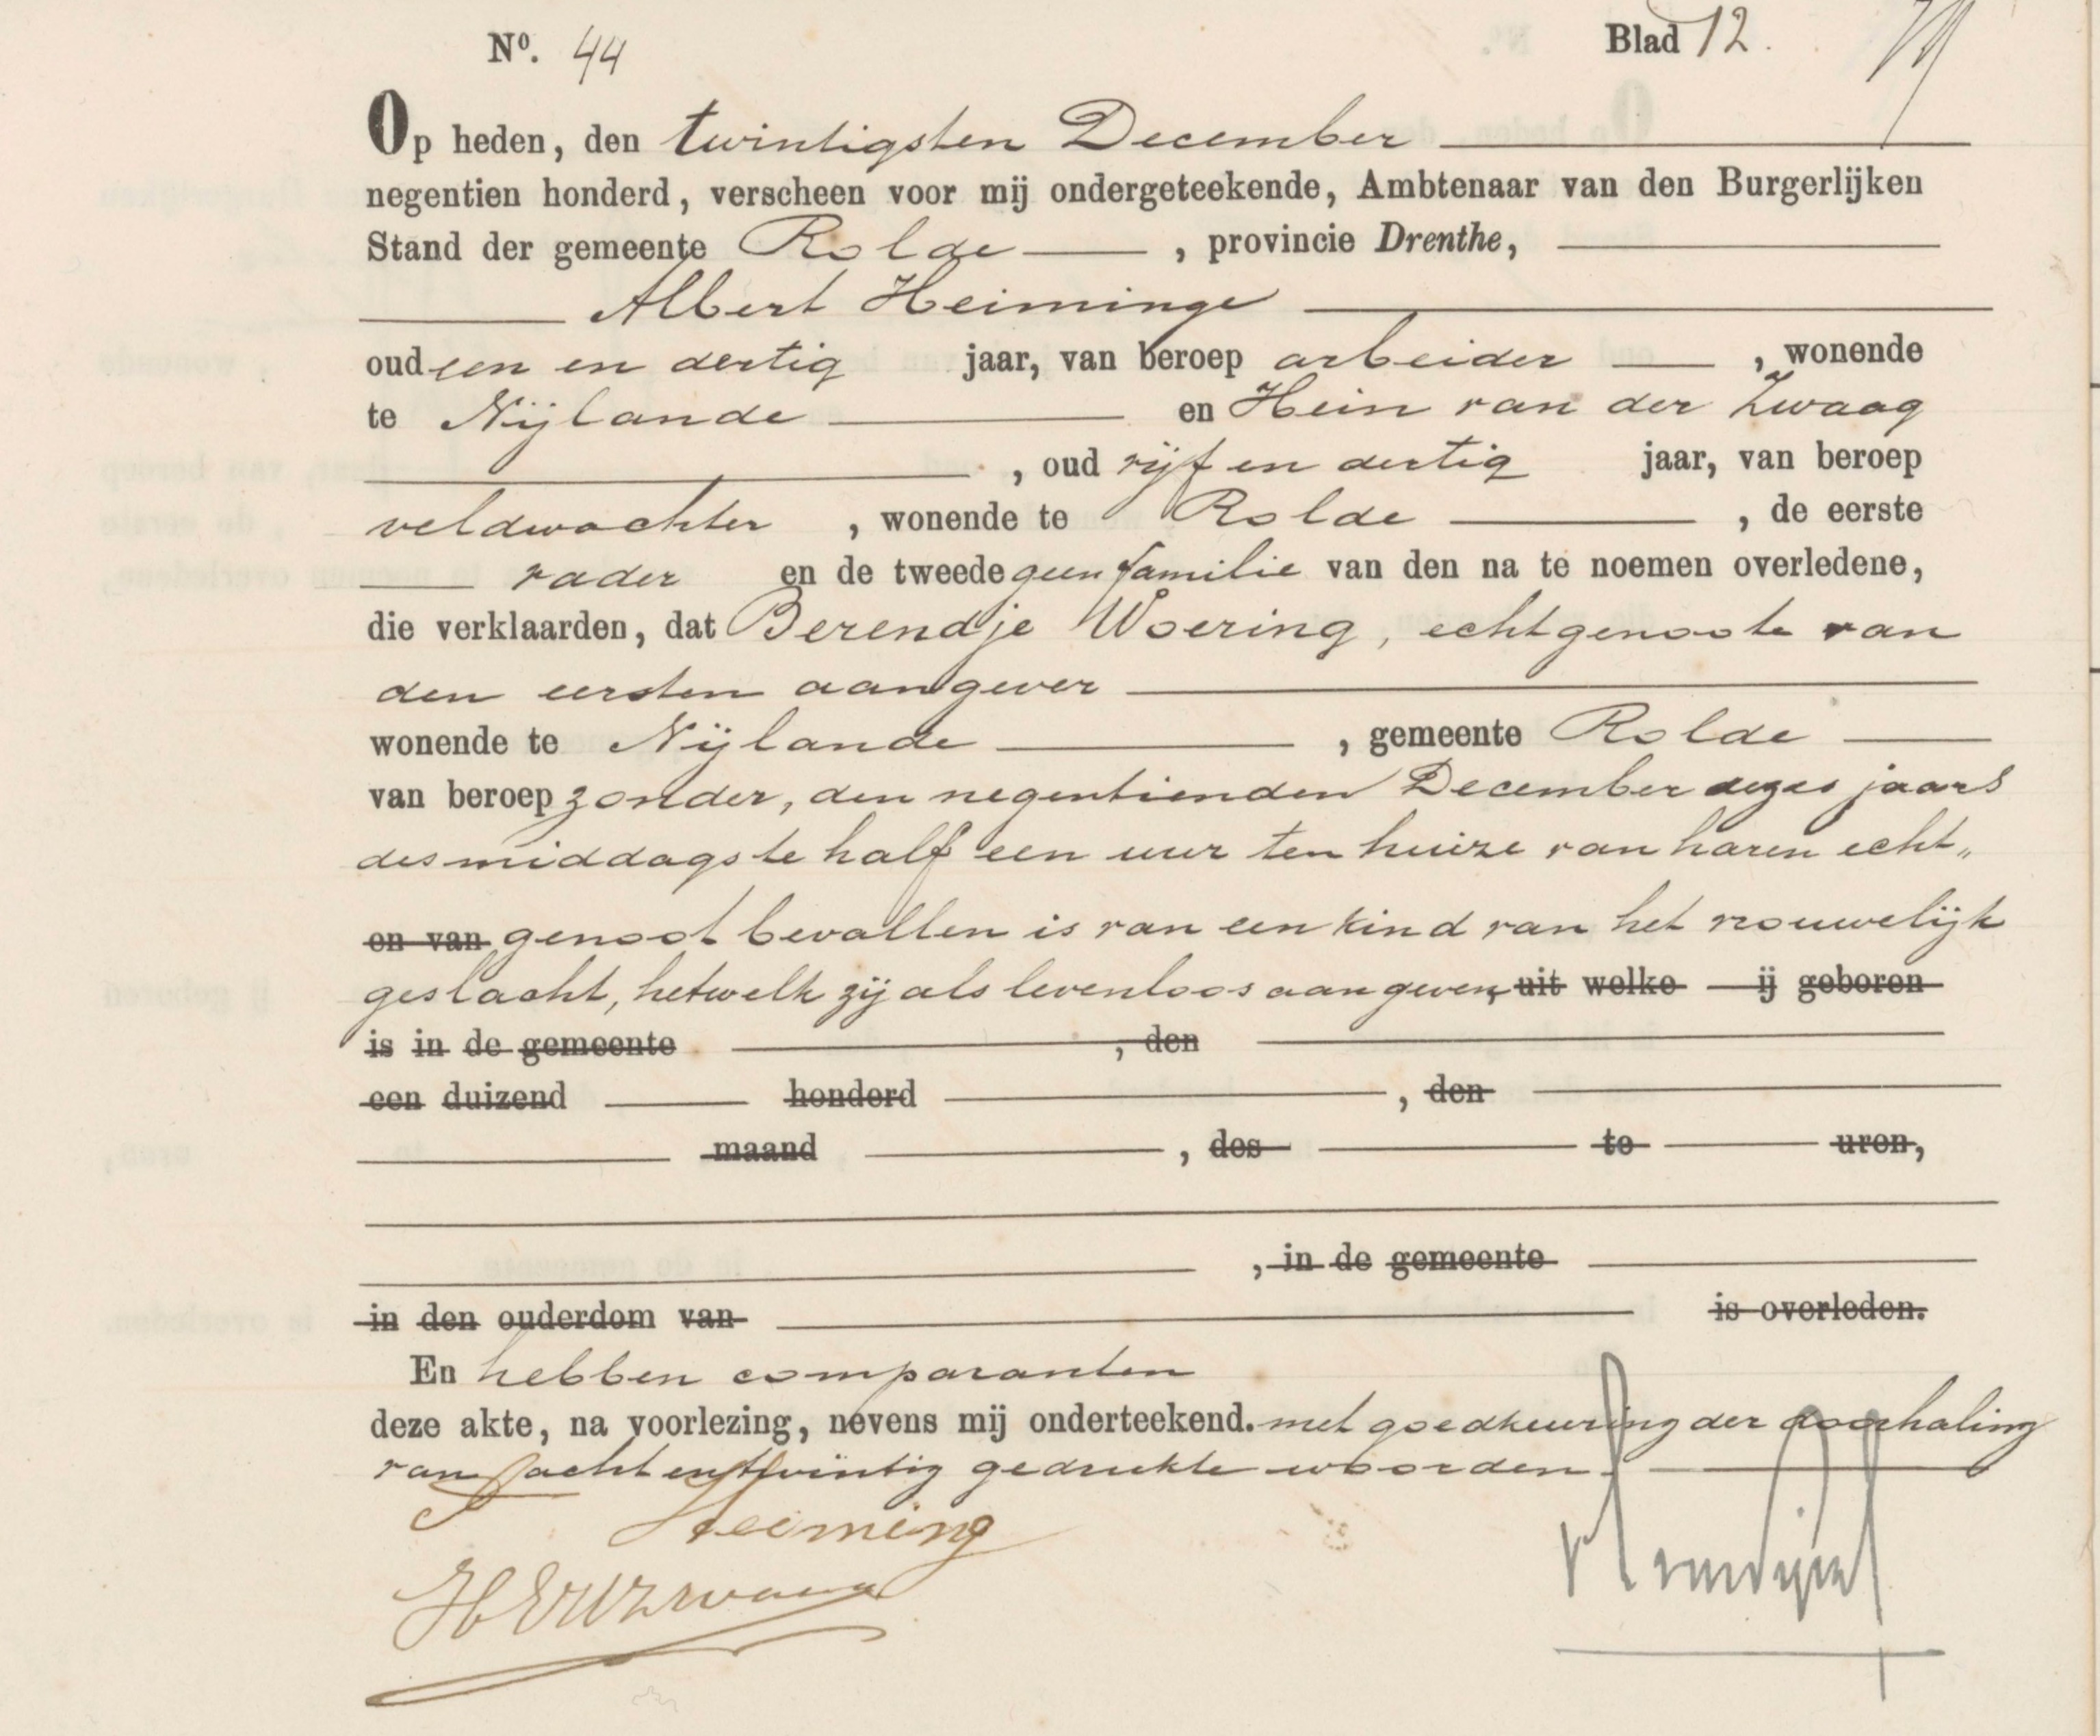 Nº. 44 Blad 12.
Op heden, den twintigsten December
negentien honderd, verscheen voor mij ondergeteekende, Ambtenaar van den Burgerlijken
Stand der gemeente Rolde, provincie Drenthe,
Albert Heiminge
oud een en dertig jaar, van beroep arbeider, wonende
te Nijlande en Hein van der Zwaag
, oud vijf en dertig jaar, van beroep
veldwachter, wonende te Rolde, de eerste
vader en de tweede geen familie van den na te noemen overledene,
die verklaarden, dat Berendje Woering, echtgenoote van
den eersten aangever
wonende te Nijlande, gemeente Rolde
van beroep zonder, den negentienden December dezes jaars
des middags te half een uur ten huize van haren echt„
en van genoot bevallen is van een kind van het vrouwelijk
geslacht, hetwelk zij als levenloos aangeven, uit welke ij geboren
is in de gemeente , den
een duizend honderd , den
maand , des te uren,
, in de gemeente
in den ouderdom van is overleden.
En hebben comparanten
deze akte, na voorlezing, nevens mij onderteekend. met goedkeuring der doorhaling
van acht en twintig gedrukte woorden.
Heiming